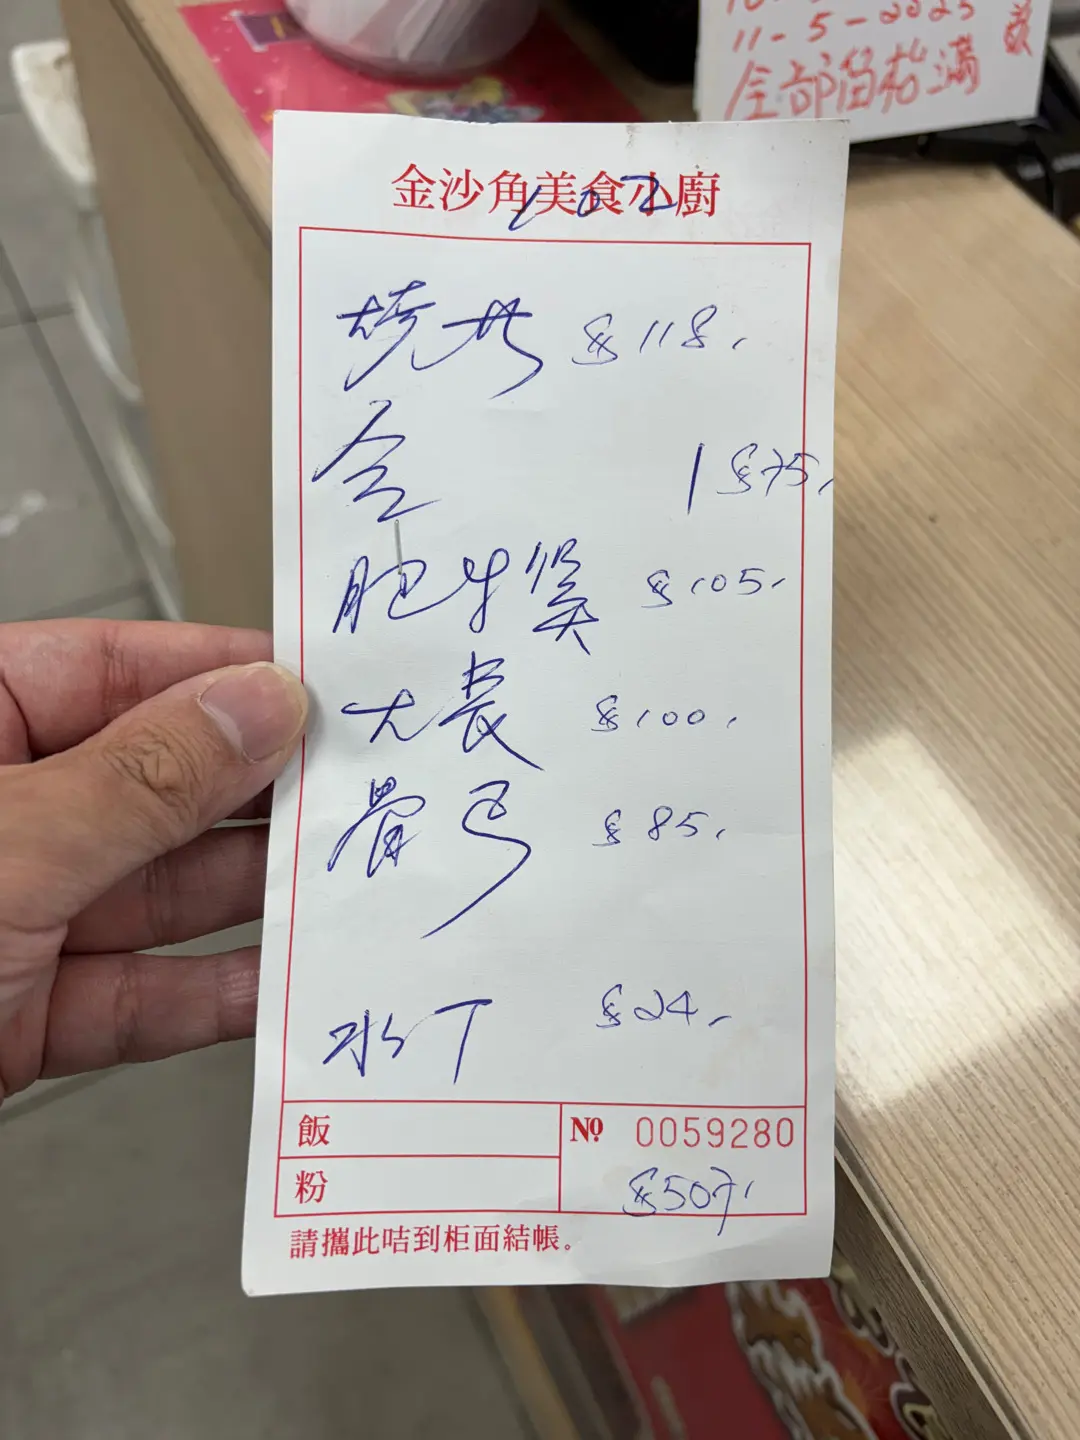 11-5-2025
全部留枱滿
金沙角美食小廚
102
$118.
1 $75.
肥牛煲 $105.
大長 $100.
骨 $85.
水 $24.
飯
粉
№ 0059280
$507.
請攜此咭到柜面結帳。